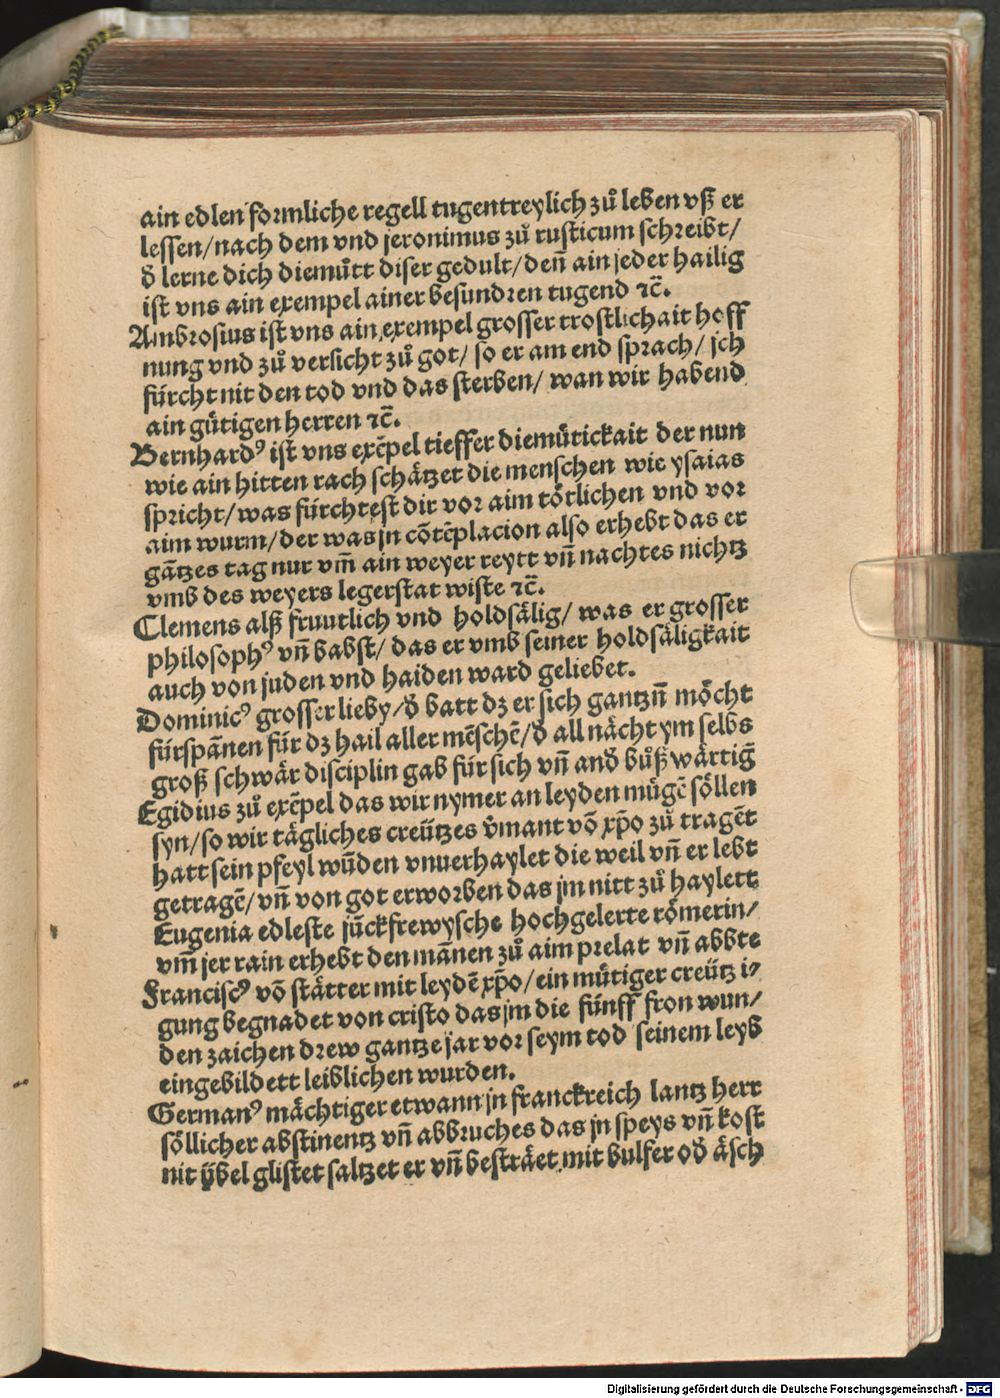 ain edlen formliche regell tugentreylich zů leben vß er
lessen/nach dem vnd jeronimus zů rusticum schreibt/
d̄ lerne dich diemůtt diser gedult/deñ ain jeder hailig
ist vns ain exempel ainer besundren tugend ⁊c̄.
Ambrosius ist vns ain exempel grosser trostlichait hoff
nung vnd zů versicht zů got/ so er am end sprach/ jch
fürcht nit den tod vnd das sterben/ wan wir habend
ain gütigen herren ⁊c̄.
Bernhardꝰ ist vns exēpel tieffer diemütickait der nun
wie ain hitten rach schätzet die menschen wie ysaias
spricht/was fürchtest dir vor aim tötlichen vnd vor
aim wurm/der was jn cōtēplacion also erhebt das er
gātzes tag nur vm̄ ain weyer reytt vñ nachtes nichtz
vmb des weyers legerstat wiste ⁊c̄.
Clemens alß fruntlich vnd holdsälig/ was er grosser
philosophꝰ vñ babst/ das er vmb seiner holdsäligkait
auch von juden vnd haiden ward geliebet.
Dominicꝰ grosser lieby/d̄ batt dz er sich gantzñ möcht
fürspānen für dz hail aller mēschē/d̄ all nächt ym selbs
groß schwär disciplin gab für sich vñ and̄ bůß wärtiḡ
Egidius zů exēpel das wir nymer an leyden mügē söllen
syn/so wir tägliches creützes v̄mant vō xp̄o zů tragēt
hatt sein pfeyl wūden vnuerhaylet die weil vñ er lebt
getragē/vñ von got erworben das jm nitt zů haylett
Eugenia edleste jūckfrewysche hochgelerte römerin/
vm̄ jer rain erhebt den mānen zů aim prelat vñ abbte
Franciscꝰ vō stätter mit leydē xp̄o/ein mütiger creütz i⸗
gung begnadet von cristo das jm die fünff fron wun/
den zaichen drew gantze jar vor seym tod seinem leyb
eingebildett leiblichen wurden.
Germanꝰ mächtiger etwann jn franckreich lantz herr
söllicher abstinentz vñ abbruches das jn speys vñ kost
nit übel glistet saltzet er vñ besträet mit bulfer od̄ äsch
Digitalisierung gefördert durch die Deutsche Forschungsgemeinschaft - DFG